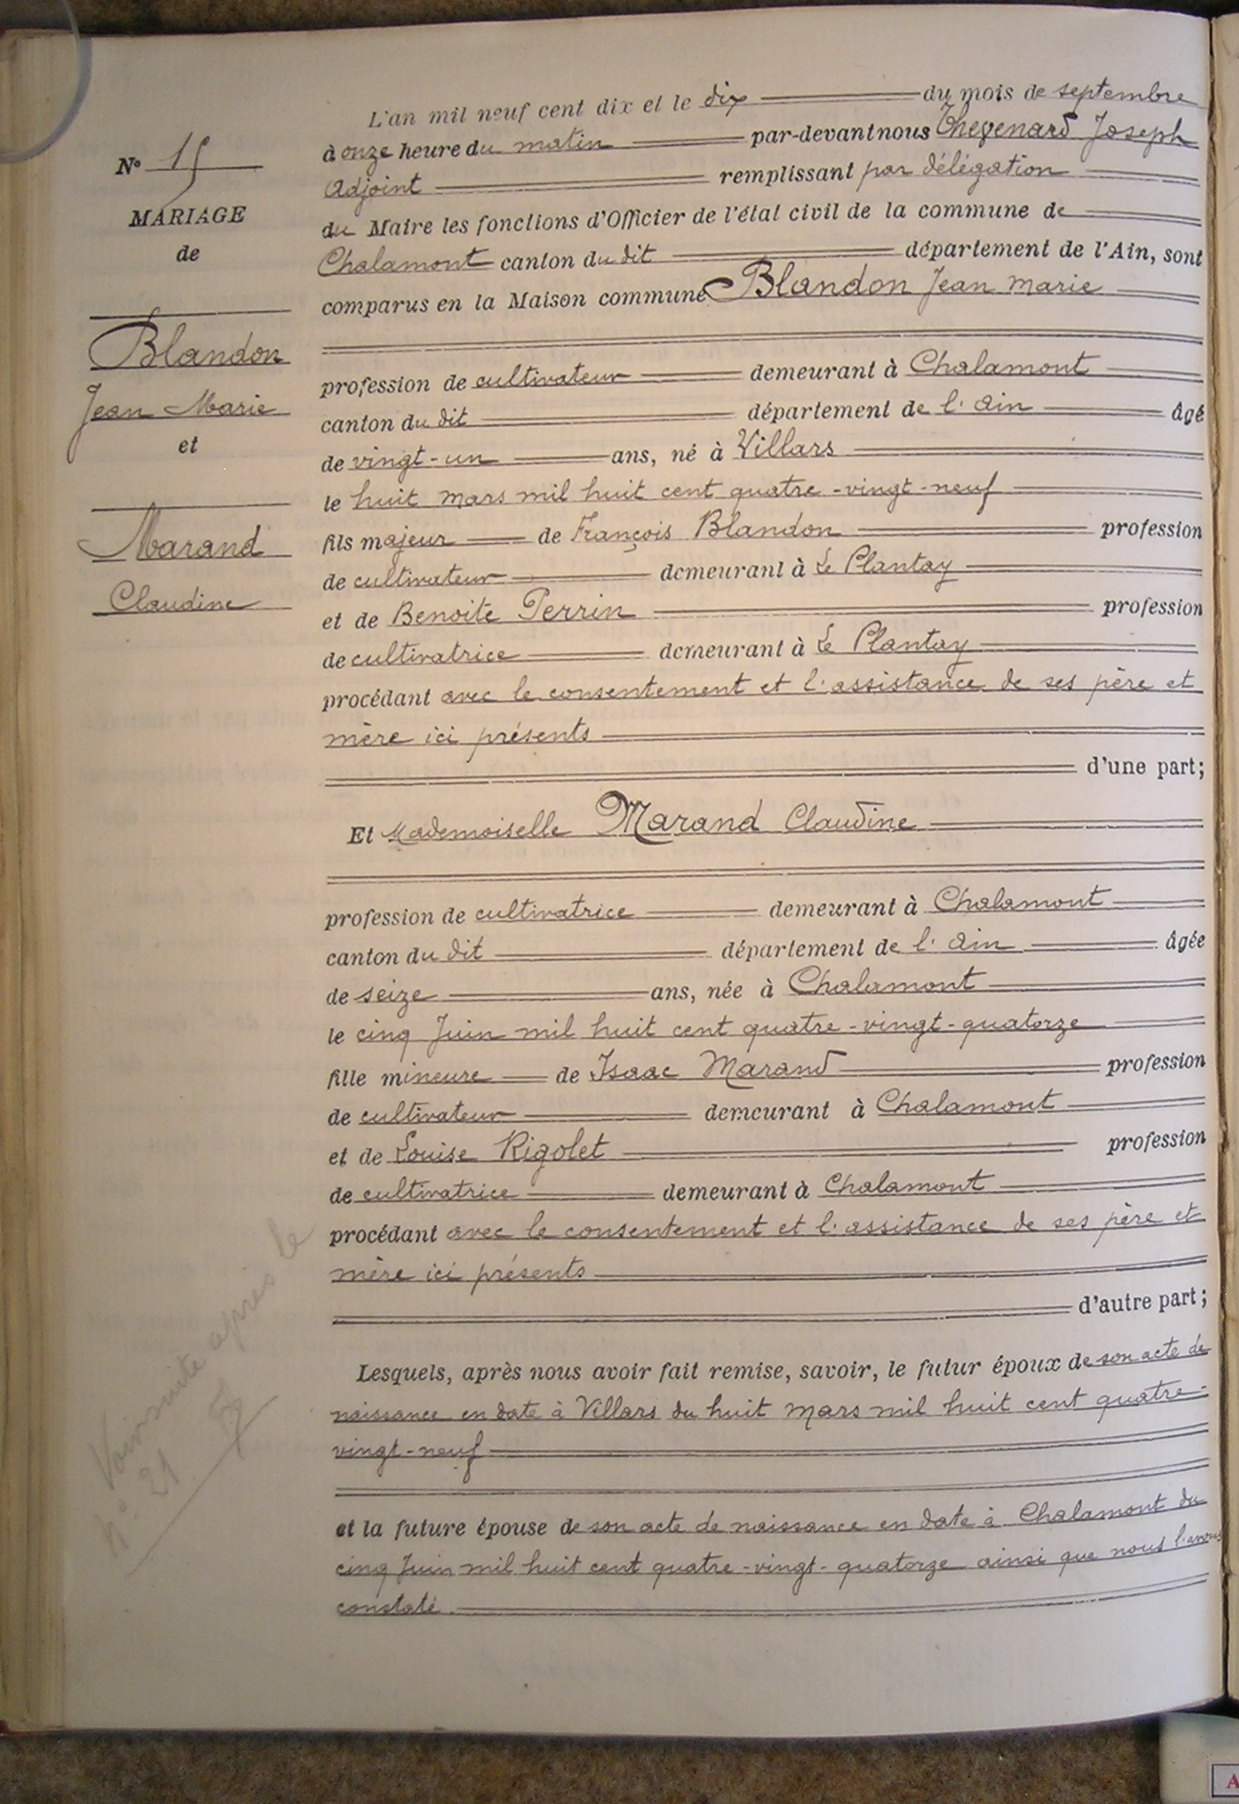 L'an mil neuf cent dix et le dix du mois de septembre
à onze heure du matin par-devant nous Thevenard Joseph
Adjoint remplissant par délégation
du Maire les fonctions d'Officier de l'état civil de la commune de
Chalamont canton du dit département de l'Ain, sont
comparus en la Maison commune Blandon Jean Marie
profession de cultivateur demeurant à Chalamont
canton du dit département de l'Ain âgé
de vingt-un ans, né à Villars
le huit mars mil huit cent quatre-vingt-neuf
fils majeur de François Blandon profession
de cultivateur demeurant à Le Plantay
et de Benoite Perrin profession
de cultivatrice demeurant à Le Plantay
procédant avec le consentement et l'assistance de ses père et
mère ici présents
d'une part;
Et Mademoiselle Marand Claudine
profession de cultivatrice demeurant à Chalamont
canton du dit département de l'Ain âgée
de seize ans, née à Chalamont
le cinq Juin mil huit cent quatre-vingt-quatorze
fille mineure de Isaac Marand profession
de cultivateur demeurant à Chalamont
et de Louise Rigolet profession
de cultivatrice demeurant à Chalamont
procédant avec le consentement et l'assistance de ses père et
mère ici présents
d'autre part;
Lesquels, après nous avoir fait remise, savoir, le futur époux de son acte de
naissance en date à Villars du huit mars mil huit cent quatre-
vingt-neuf
et la future épouse de son acte de naissance en date à Chalamont du
cinq Juin mil huit cent quatre-vingt-quatorze ainsi que nous l'avons
constaté
N° 15
MARIAGE
de
Blandon
Jean Marie
et
Marand
Claudine
Voir suite après le
N° 21
A